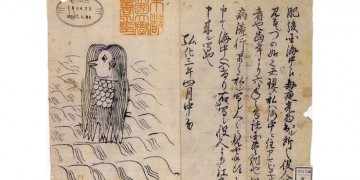 肥後国海中え毎夜光物出ル所之役人行
見るニづの如く者現ス私ハ海中ニ住アマビヱト申
者也当年より六ヶ年之間諸国豊作也併
病流行早々私ヲ写シ人々ニ見セ候得と
申て海中へ入けり右ハ写シ役人より江戸え
申来ル写也
弘化三年四月中旬